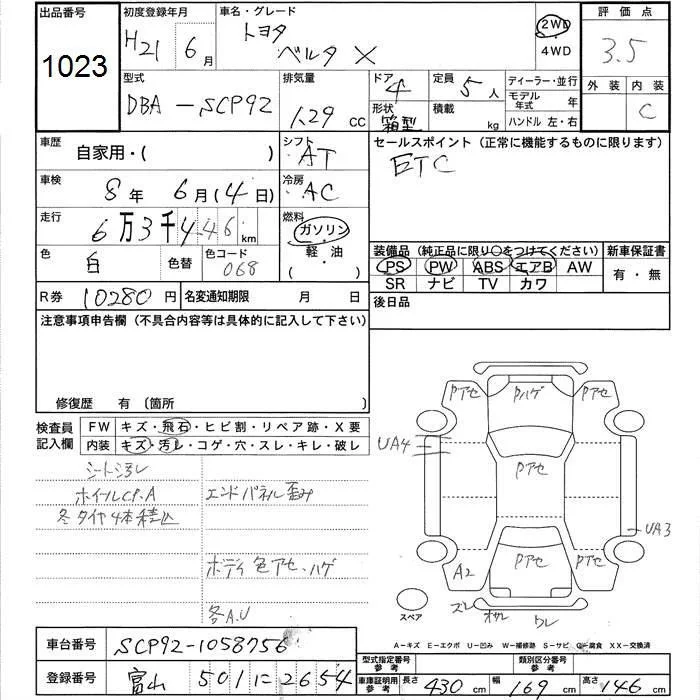 出品番号 初度登録年月 車名・グレード 評価点
1023 H21 6月 トヨタ ベルタ X 2WD 4WD 3.5
外装 内装 C
型式 排気量 ドア 4 定員 5人 ディーラー・並行
DBA-SCP92 1.29 CC 形状 箱型 積載 kg モデル年式 年
ハンドル 左・右
車歴 自家用・( ) シフト AT セールスポイント (正常に機能するものに限ります)
ETC
車検 8年 6月(4日) 冷房 AC
走行 6万3千446km 燃料 ガソリン
軽・油
( )
色 白 色替 色コード 068
装備品 (純正品に限り○をつけてください) 新車保証書
PS PW ABS エアB AW 有・無
SR ナビ TV カワ
R券 10280円 名変通知期限 月 日 後日品
注意事項申告欄 (不具合内容等は具体的に記入して下さい)
修復歴 有 〔箇所
検査員記入欄 FW キズ・飛石・ヒビ割・リペア跡・X要
内装 キズ・汚レ・コゲ・穴・スレ・キレ・破レ
シート汚レ
ホイールCP.A エンドパネル歪み
冬タイヤ4本積込
ボディ色アセ、ハゲ
各A.U
Pアセ Pハゲ Pアセ
UA4
Pアセ
UA3
A2 Pアセ Pアセ
スレ オサレ ワレ
スペア
A-キズ E-エクボ U-凹み W-補修跡 S-サビ C-腐食 XX-交換済
車台番号 SCP92-1058756
型式指定番号 参考 類別区分番号 参考
登録番号 富山 501 に 2654
車庫証明用 参考 長さ 430cm 幅 169cm 高さ 146cm